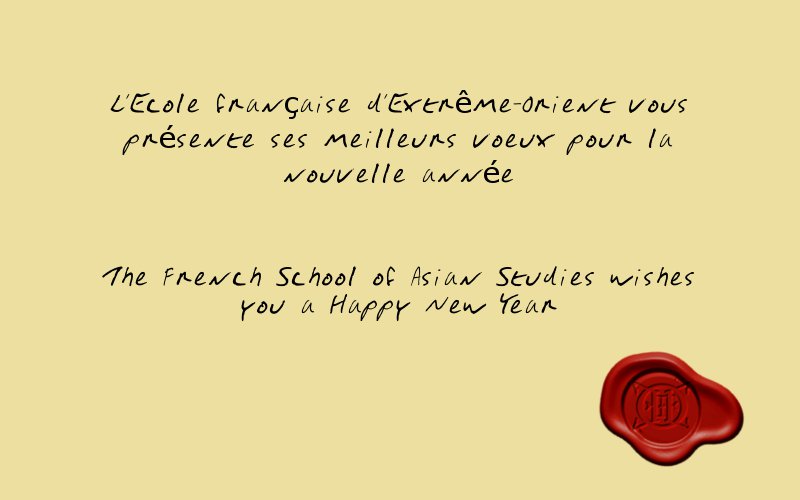 L'Ecole française d'Extrême-Orient vous
présente ses meilleurs voeux pour la
nouvelle année
The French School of Asian Studies wishes
you a Happy New Year